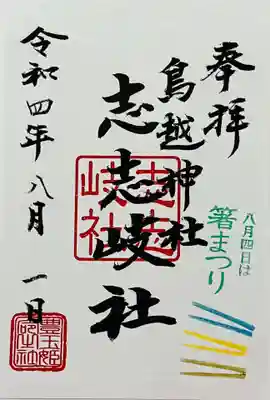 奉拝
鳥越神社
志志岐社
令和四年八月一日
八月四日は
箸まつり
志志岐社
豊玉姫命社